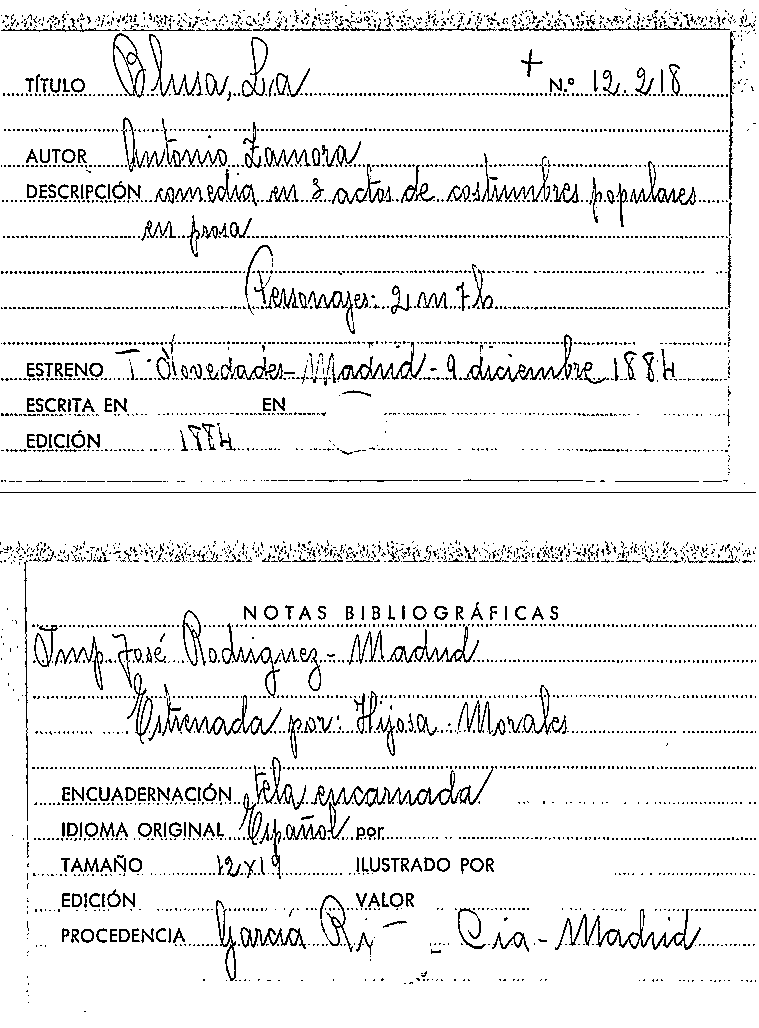 TÍTULO Blusa, La + N.º 12.218
AUTOR Antonio Zamora
DESCRIPCIÓN comedia en 3 actos de costumbres populares
en prosa
Personajes: 2 m 7 h
ESTRENO T. Novedades - Madrid - 9 diciembre 1884
ESCRITA EN EN
EDICIÓN 1884
NOTAS BIBLIOGRÁFICAS
Imp. José Rodriguez - Madrid
Estrenada por: Hijosa - Morales
ENCUADERNACIÓN tela encarnada
IDIOMA ORIGINAL Español por
TAMAÑO 12x19 ILUSTRADO POR
EDICIÓN VALOR
PROCEDENCIA García - Cia - Madrid